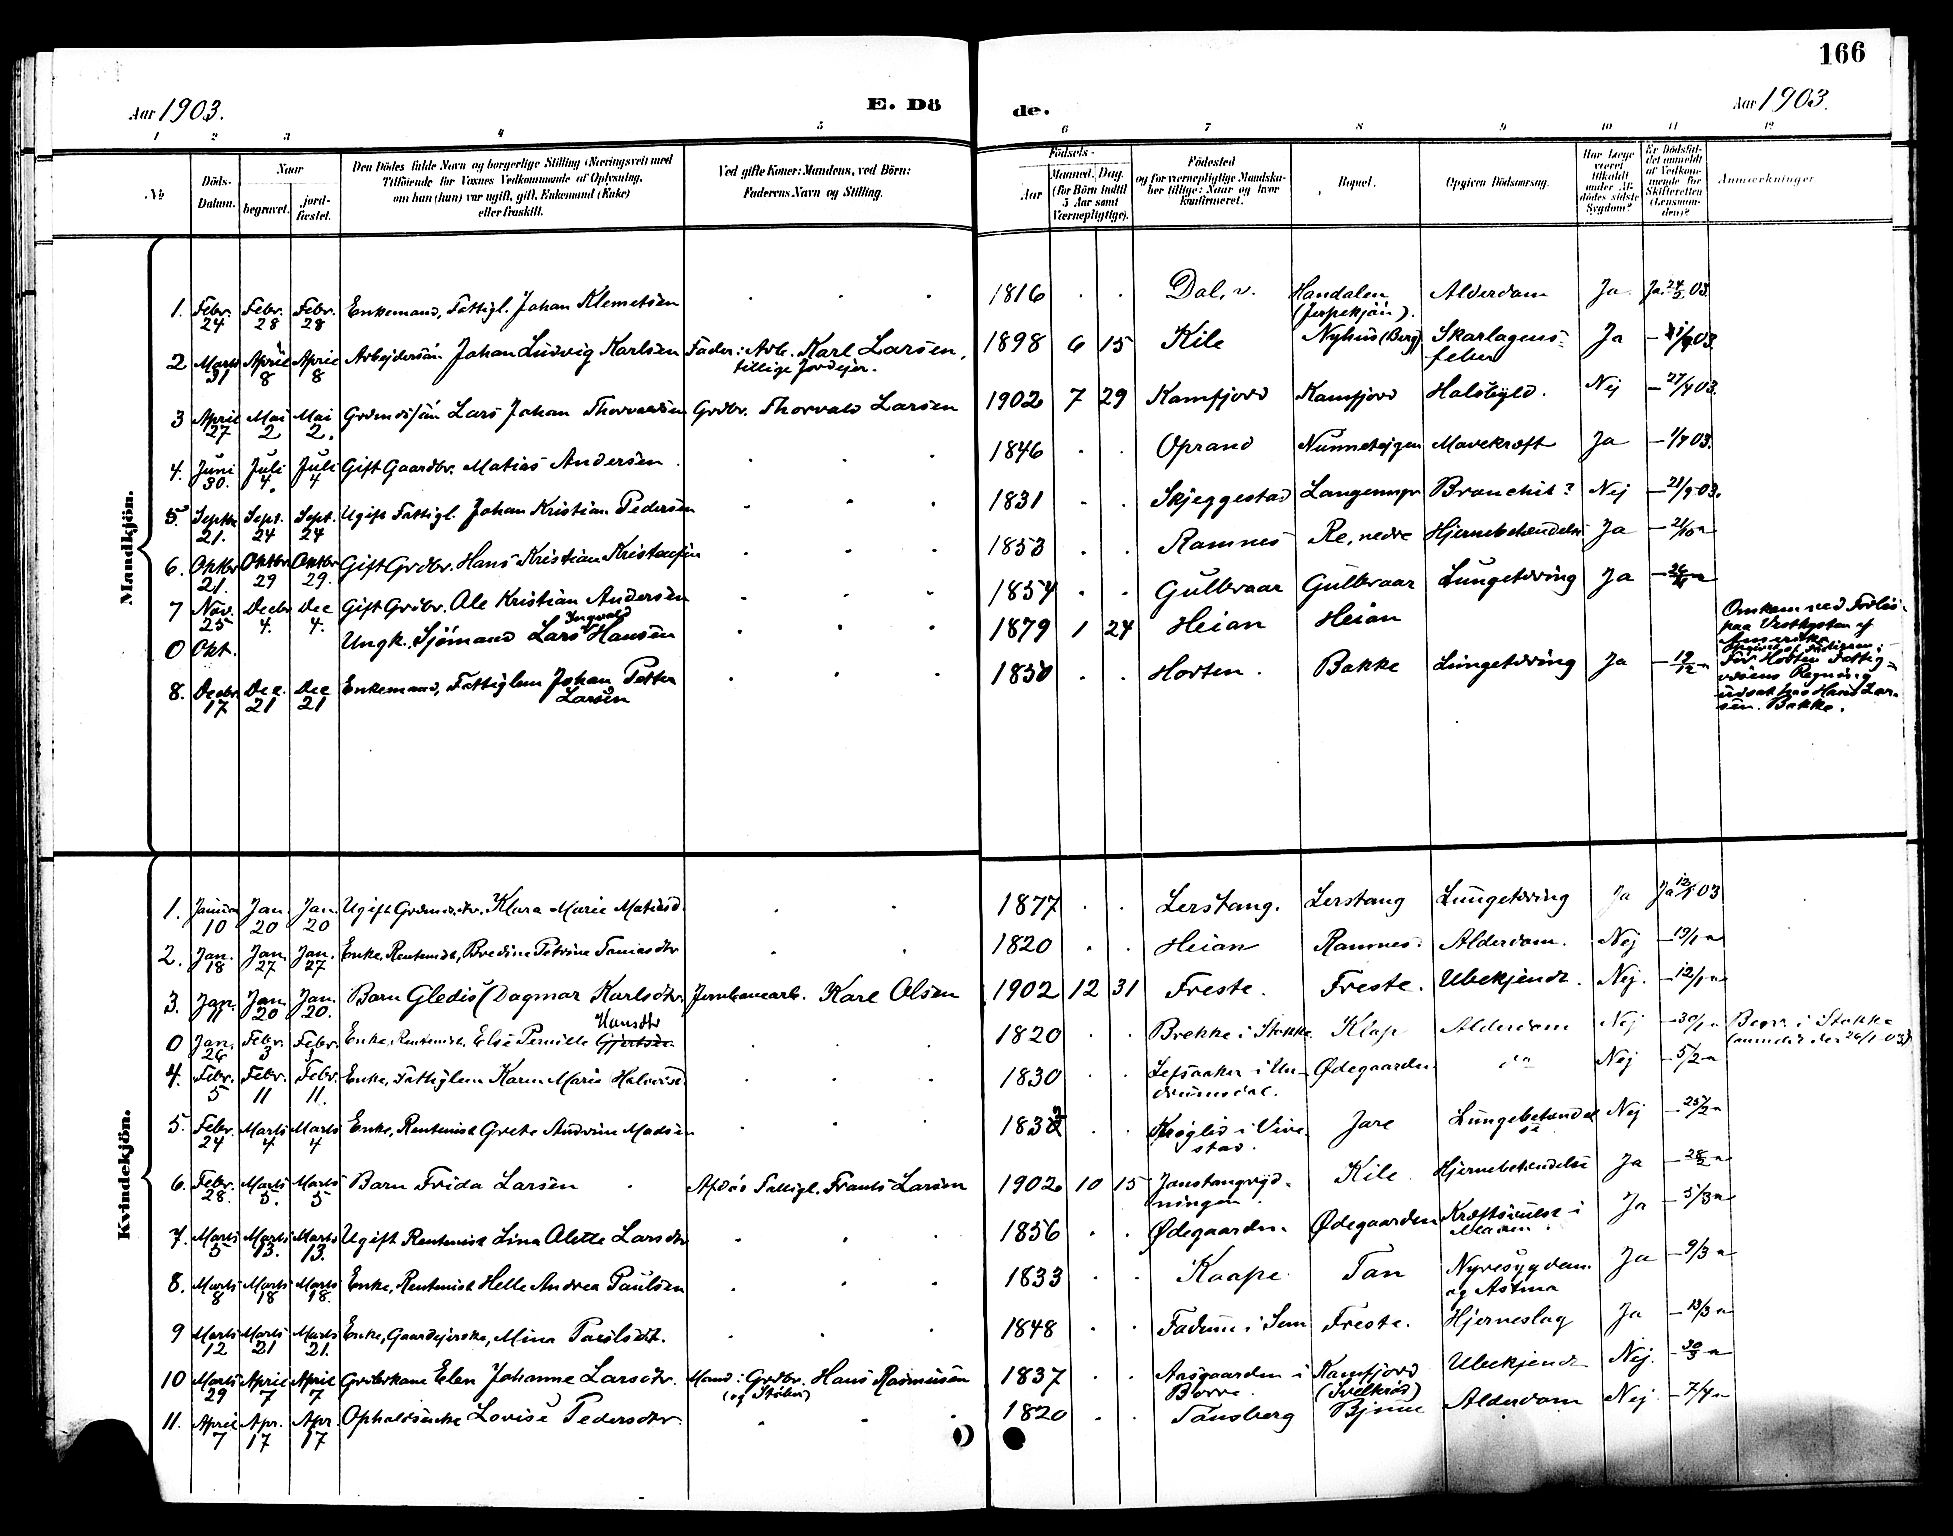 166
Aar 1903. E. Dö de. Aar 1903.
1 2 3 4 5 6 7 8 9 10 11 12
No Döds-Datum. Naar begravet. jord-fæstet. Den Dödes fulde Navn og borgerlige Stilling (Næringsvei) med Tilföiende for Voxnes Vedkommende af Oplysning, om han (hun) var ugift, gift, Enkemand (Enke) eller fraskilt. Ved gifte Koner: Mandens, ved Börn: Faderens Navn og Stilling.
Födsels- Aar Maaned. Dag. (for Börn indtil 5 Aar samt Værnepligtige). Födested og for værnepligtige Mandska-ber tillige: Naar og hvor konfirmeret. Bopæl. Opgiven Dödsaarsag. Har Læge været tilkaldt under Af-dödes sidste Sygdom? Er Dödsfal-det anmeldt af Vedkom-mende for Skifteretten (Lensman-den)? Anmærkninger
Mandkjön.
1. Febr. 24 Febr. 28 Febr. 28 Enkemand, Fattigl. Johan Klemetsen 1816 Dal, v. Handalen (Jerpekjøn). Alderdom Ja Ja 03.
2 Marts 31 April 8 April 8 Arbejdersøn Johan Ludvig Karlsen Fader: Arb. Karl Larsen, tillige Jordejer. 1898 6 15 Kile Nyhus (Berg) Skarlagens-feber Ja 03.
3 April 27 Mai 2 Mai 2. Grdmdssøn Lars Johan Thorvaldsen Grdbr. Thorvald Larsen 1902 7 29 Kamfjord Kamfjord Halsbyld. Nej - 27/4 03.
4. Juni 30. Juli 4. Juli 4 Gift Gaardbr. Matias Andersen 1846 Oprand Mavekræft Ja - 1/7 03.
5. Septbr 21. Sept. 24 Sept. 24 Ugift Fattigl. Johan Kristian Pedersen 1831 Skjeggestad Bronchit? Nej - 21/9 03.
6. Oktbr 21. Oktbr 29 Oktbr 29. Gift Grdbr. Hans Kristian Kristensen 1853 Ramnes Re, nedre Hjernebetændelse Ja - 21/10 "
7 Nov. 25 Decbr 4. Dec 4. Gift Grdbr. Ole Kristian Andersen 1854 Gulbraar Gulbraar Lungetæring Ja
0 Okt. Ungk. Sjömand Lars Ingvald Hansen 1879 1 24 Heian Heian Omkom ved Forlis paa Vestkysten af Amerika
8. Decbr 17 Dec. 21 Dec 21 Enkemand, Fattiglem Johan Petter Larsen 1850 Horten. Bakke Lungetæring Ja - 19/12 " For Horten Fattig-væsens Regning udsat hos Hans Lar-sen. Bakke.
Kvindekjön.
1. Januar 10 Jan. 20 Jan. 20 Ugift Klara Marie Matiasd. 1877 Lerstang. Lerstang Lungetæring Ja Ja 03
2. Jan. 18 Jan. 27 Jan. 27 Enke, Rentenist, Bredine Petrine Tomasdtr 1820 Heian Ramnes. Alderdom. Nej - 19/1 "
3. Jan. 11 Jan. 20 Jan. 20. Barn Gledis (Dagmar Karlsdtr. Jernbanearb. Karl Olsen 1902 12 31 Freste. Freste. Ubekjendt. Nej. - 12/1 "
0 Jan. 26 Febr. 3 Febr. 3 Enke, Rentenist, Else Pernille Hansdtr 1820 Brekke i Stokke Klop Alderdom Nej - 30/1 " Begr. i Stokke (anmeldt der 26/1 03)
4. Febr. 5 Febr. 11 Febr. 11. Enke, Fattiglem Karen Marie Halvorsd. 1830 i Un-drumsdal. Ødegaarden " Nej - 5/2 "
5. Febr. 24 Marts 4 Marts 4 Enke, Rentenist Grete Andrine Madsen 1832 Krøglid i Vive-stad. Jare Lungebetændel-se Nej - 25/2 "
6. Febr. 28. Marts 5. Marts 5 Barn Frida Larsen Afdød Fattigl. Frants Larsen 1902 10 15 Kile Hjernebetændelse Ja - 28/2 "
7. Marts 5 Marts 13. Marts 13. Ugift Rentenist Lina Olette Larsdtr 1856 Ødegaarden Ødegaarden Kræftsvulst i Maven. Ja - 5/3 "
8. Marts 8 Marts 18 Marts 18. Enke, Rentenist Helle Andrea Paulsen 1833 Kaape Tan Nyresygdom og Astma Ja - 9/3 "
9 Marts 12 Marts 21 Marts 21. Enke, Gaardejerske, Mina 1848 Fadum i Sem Freste. Hjerneslag Ja - 13/3 "
10 Marts 29 April 7 April 7 Grdbrkone Elen Johanne Larsdtr. Mand: Grdbr. Hans Rasmussen 1837 Aasgaarden i Borre. Kamfjord Ubekjendt Nej. - 30/3 "
11. April 7 Apr. 17 Apr. 17 Opholdsenke Lovise Pedersdtr. 1820 Tønsberg Bjune Alderdom Nej - 7/4 "